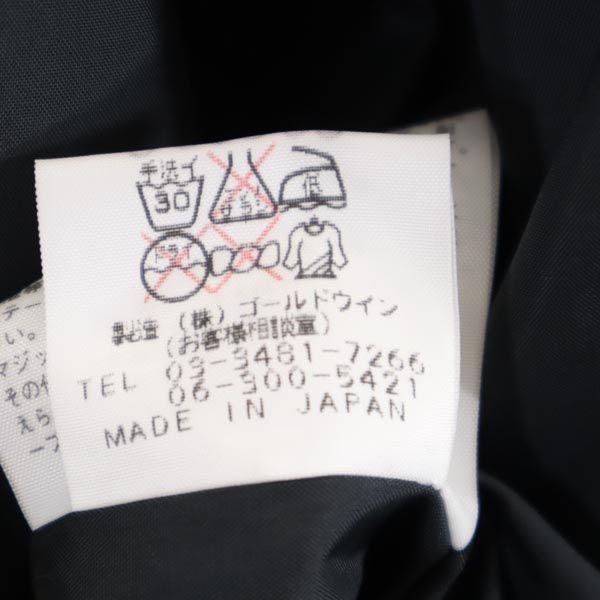 手洗イ
30
エンソ
サラシ
低
ドライ
製造 (株) ゴールドウイン
(お客様相談室)
TEL 03-3481-7266
06-300-5421
MADE IN JAPAN
テー
い。
マジッ
その
えら
ーフ